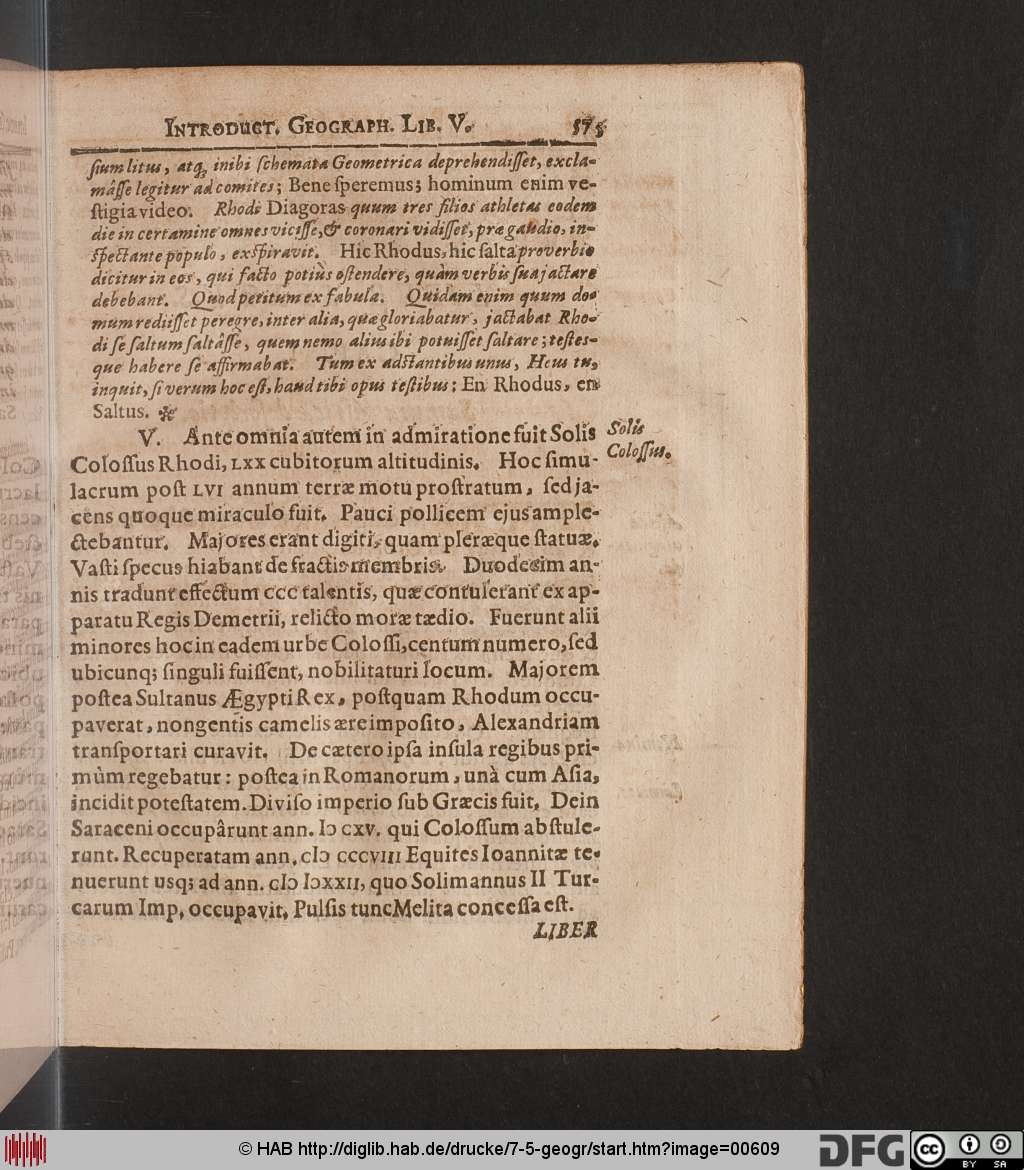 INTRODUCT. GEOGRAPH. LIB. V. 575
ſium litus, atq; inibi ſchemata Geometrica deprehendiſſet, excla-
mâſſe legitur ad comites; Bene ſperemus; hominum enim ve-
ſtigia video. Rhodi Diagoras quum tres filios athletas eodem
die in certamine omnes viciſſe, & coronari vidiſſet, præ gaudio, in-
ſpectante populo, exſpiravit. Hic Rhodus, hic ſalta proverbio
dicitur in eos, qui facto potiùs oſtendere, quàm verbis ſua jactare
debebant. Quod petitum ex fabula. Quidam enim quum do-
mum rediiſſet peregre, inter alia, quæ gloriabatur, jactabat Rho-
di ſe ſaltum ſaltâſſe, quem nemo alius ibi potuiſſet ſaltare; teſtes-
que habere ſe affirmabat. Tum ex adſtantibus unus, Heus tu,
inquit, ſi verum hoc eſt, haud tibi opus teſtibus: En Rhodus, en
Saltus. ⁜
V. Ante omnia autem in admiratione fuit Solis
Coloſſus Rhodi, LXX cubitorum altitudinis. Hoc ſimu-
lacrum poſt LVI annum terræ motu proſtratum, ſed ja-
cens quoque miraculo fuit. Pauci pollicem ejus ample-
ctebantur. Majores erant digiti, quam pleræque ſtatuæ.
Vaſti ſpecus hiabant de fractis membris. Duodecim an-
nis tradunt effectum CCC talentis, quæ contulerant ex ap-
paratu Regis Demetrii, relicto moræ tædio. Fuerunt alii
minores hoc in eadem urbe Coloſſi, centum numero, ſed
ubicunq; ſinguli fuiſſent, nobilitaturi locum. Majorem
poſtea Sultanus Ægypti Rex, poſtquam Rhodum occu-
paverat, nongentis camelis ære impoſito, Alexandriam
tranſportari curavit. De cætero ipſa inſula regibus pri-
mùm regebatur: poſtea in Romanorum, unà cum Aſia,
incidit poteſtatem. Diviſo imperio ſub Græcis fuit. Dein
Saraceni occupârunt ann. IↃ CXV. qui Coloſſum abſtule-
runt. Recuperatam ann. CIↃ CCCVIII Equites Ioannitæ te-
nuerunt usq; ad ann. CIↃ IↃXXII, quo Solimannus II Tur-
carum Imp. occupavit. Pulſis tunc Melita conceſſa eſt.
LIBER
Solis
Coloſſus.
© HAB http://diglib.hab.de/drucke/7-5-geogr/start.htm?image=00609
DFG
cc
BY SA